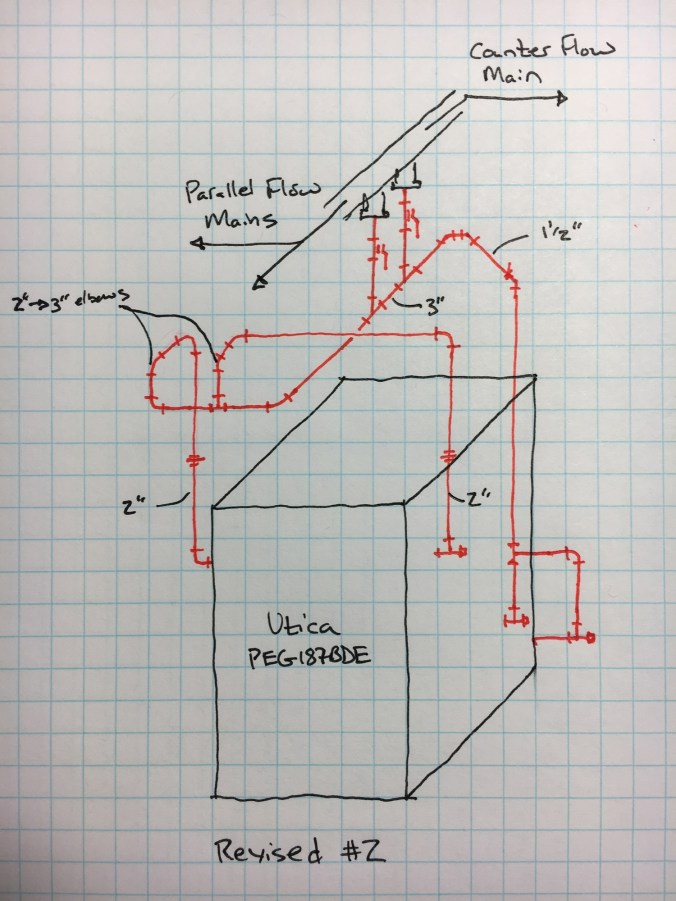 Counter Flow
Main
Parallel Flow
Mains
1 1/2"
2"→3" elbows
3"
2"
2"
Utica
PEG187BDE
Revised #2